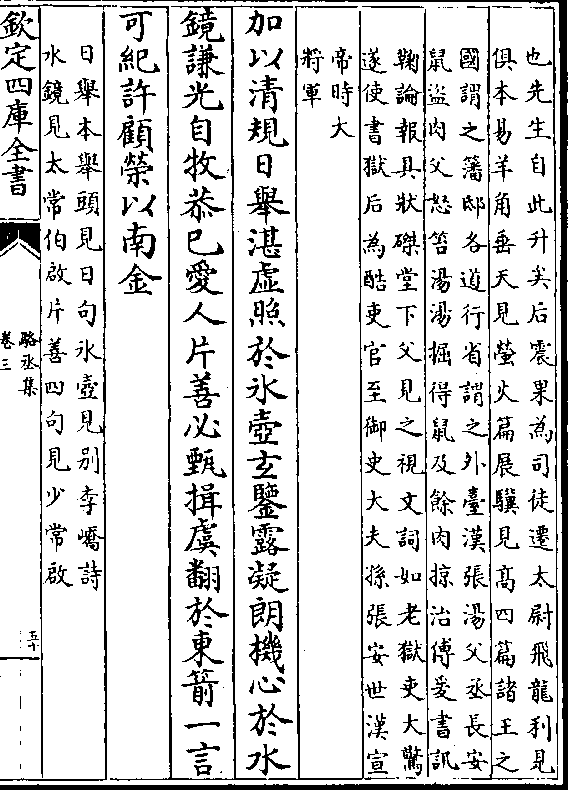 也先生自此升矣后震果為司徒遷太尉飛龍利見
俱本易羊角垂天見螢火篇展驥見髙四篇諸王之
國謂之藩邸各道行省謂之外臺漢張湯父丞長安
鼠盜肉父怒笞湯湯掘得鼠及餘肉掠治傅爰書訊
鞠論報具狀磔堂下父見之視文詞如老獄吏大驚
遂使書獄后為酷吏官至御史大夫孫張安世漢宣
帝時大
將軍
加以清規日舉湛虛照於氷壺玄鑒露凝朗機心於水
鏡謙光自牧恭已愛人片善必甄揖虞翻於東箭一言
可紀許顧榮以南金
日舉本舉頭見日句氷壺見别李嶠詩
水鏡見太常伯啟片善四句見少常啟
欽定四庫全書
駱丞集
卷三
五十